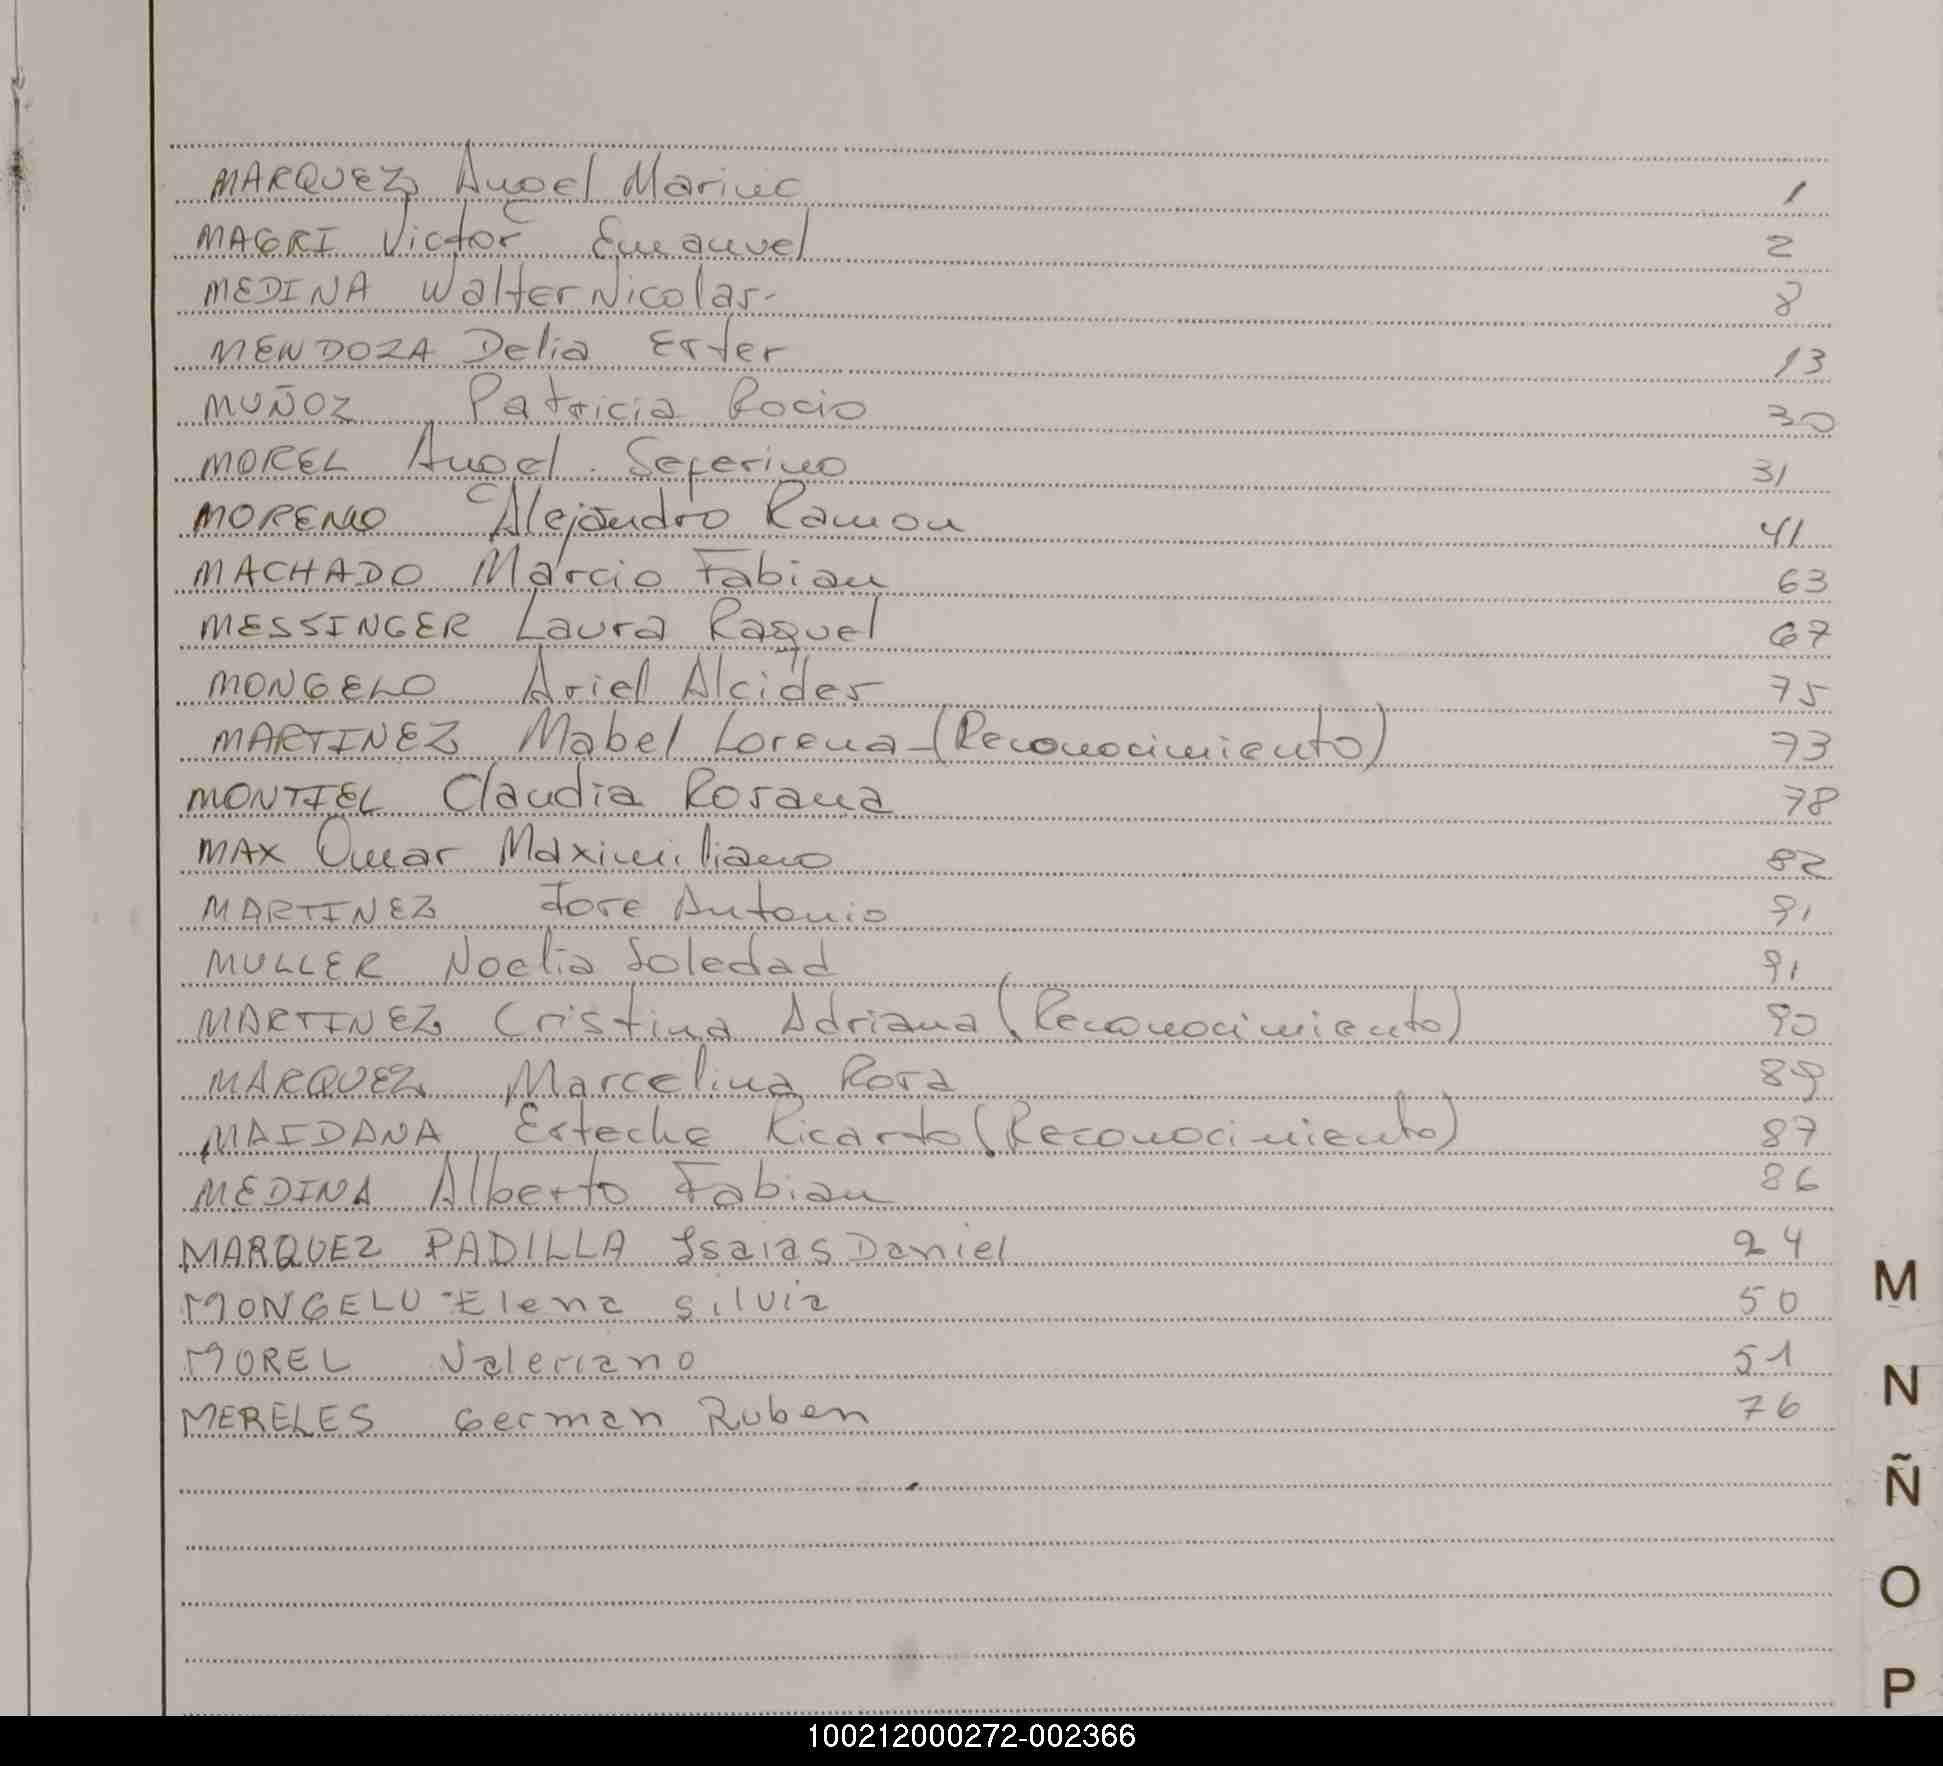 MARQUEZ Angel Marino 1
MAGRI Victor Emanuel 2
MEDINA Walter Nicolas- 8
MENDOZA Delia Ester 13
MUÑOZ Patricia Rocio 30
MOREL Angel Seferino 31
MORENO Alejandro Ramon 41
MACHADO Marcio Fabian 63
MESSINGER Laura Raquel 67
MONGELO Ariel Alcides 75
MARTINEZ Mabel Lorena-(Reconocimiento) 73
MONTIEL Claudia Rosana 78
MAX Omar Maximiliano 82
MARTINEZ Jose Antonio 91
MULLER Noelia Soledad 91
MARTINEZ Cristina Adriana (Reconocimiento) 90
MARQUEZ Marcelina Rosa 89
MAIDANA Esteche Ricardo (Reconocimiento) 87
MEDINA Alberto Fabian 86
MARQUEZ PADILLA Isaias Daniel 24
MONGELO Elena Silvia 50
MOREL Valeriano 51
MERELES German Ruben 76
M
N
Ñ
O
P
100212000272-002366